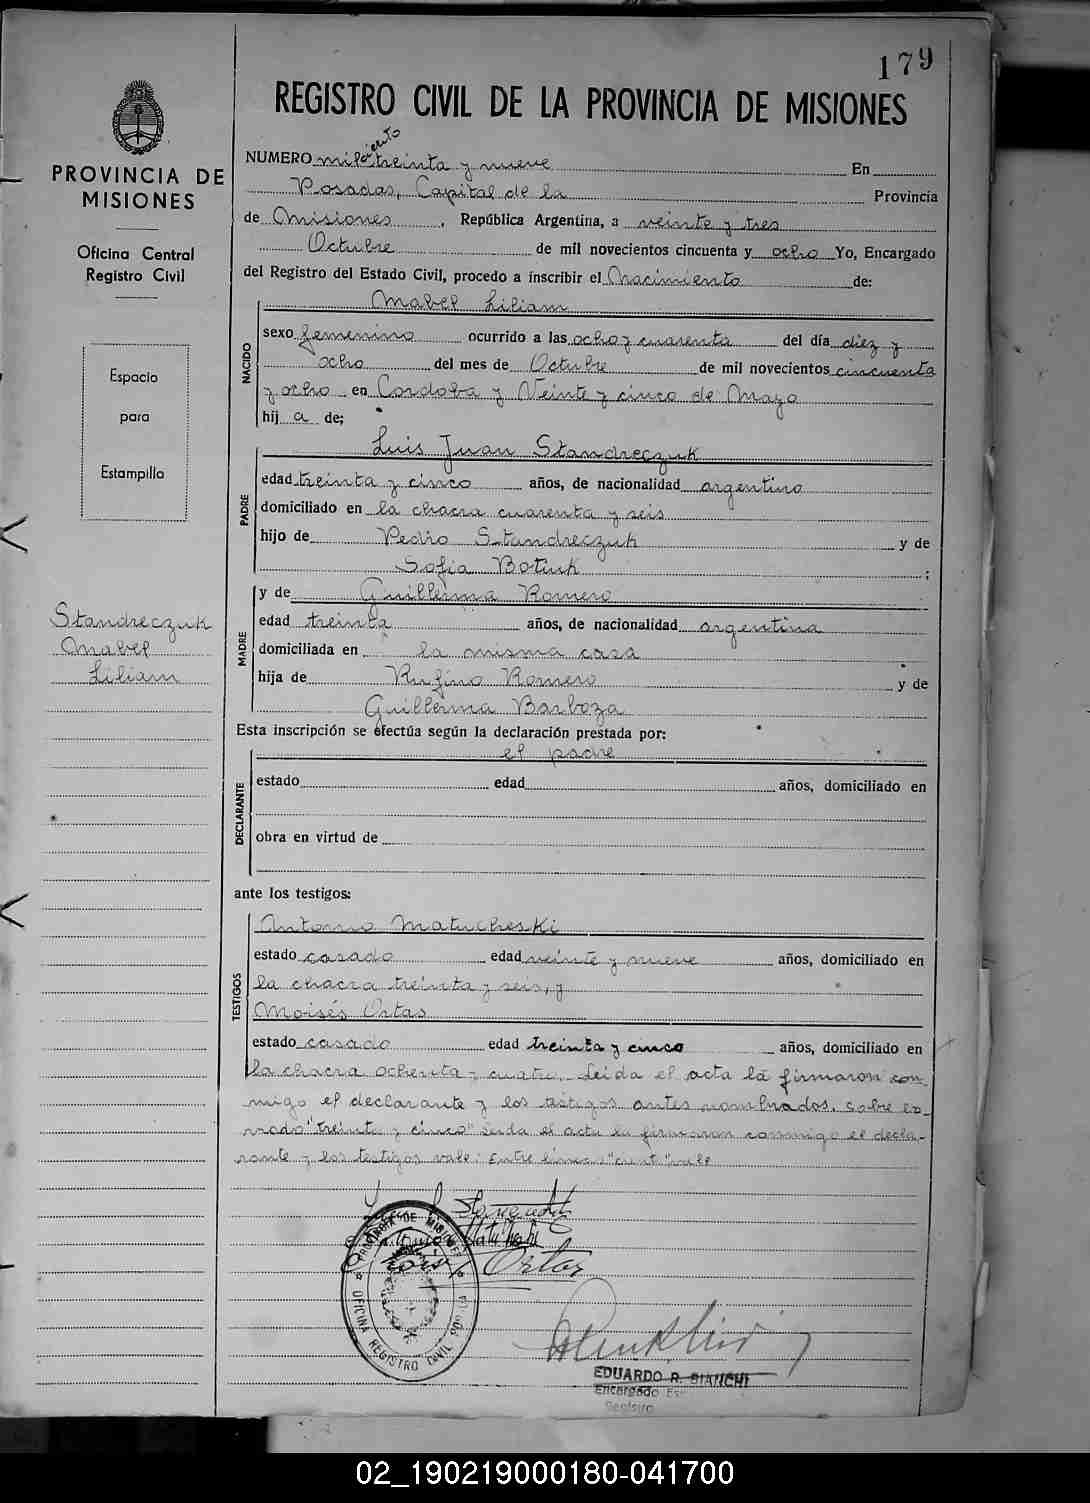 179
REGISTRO CIVIL DE LA PROVINCIA DE MISIONES
PROVINCIA DE
MISIONES
Oficina Central
Registro Civil
Espacio
para
Estampilla
Standreczuk
Mabel
Liliam
ciento
NUMERO mil treinta y nueve En
Posadas, Capital de la Provincia
de Misiones, República Argentina, a veinte y tres
Octubre de mil novecientos cincuenta y ocho Yo, Encargado
del Registro del Estado Civil, procedo a inscribir el Nacimiento de:
Mabel Liliam
NACIDO
sexo femenino ocurrido a las ocho y cuarenta del día diez y
ocho del mes de Octubre de mil novecientos cincuenta
y ocho en Cordoba y Veinte y cinco de Mayo
hij a de;
Luis Juan Standreczuk
PADRE
edad treinta y cinco años, de nacionalidad argentino
domiciliado en la chacra cuarenta y seis
hijo de Pedro Standreczuk y de
Sofia Botiuk ;
y de Guillerma Romero
MADRE
edad treinta años, de nacionalidad argentina
domiciliada en la misma casa
hija de Rufino Romero y de
Guillerma Barboza
Esta inscripción se efectúa según la declaración prestada por:
el padre
DECLARANTE
estado edad años, domiciliado en
obra en virtud de
ante los testigos:
TESTIGOS
Antonio Matucheski
estado casado edad veinte y nueve años, domiciliado en
la chacra treinta y seis, y
Moisés Ortas
estado casado edad treinta y cinco años, domiciliado en
la chacra ochenta y cuatro. Leida el acta la firmaron con-
migo el declarante y los testigos antes nombrados. Sobre ra-
do "treinta y cinco" leida el acta la firmaron conmigo el decla-
rante y los testigos vale: Entre lineas "cient" vale
Ortas
PROVINCIA DE MISIONES
OFICINA REGISTRO CIVIL
EDUARDO R. BIANCHI
Encargado
Registro
02_190219000180-041700